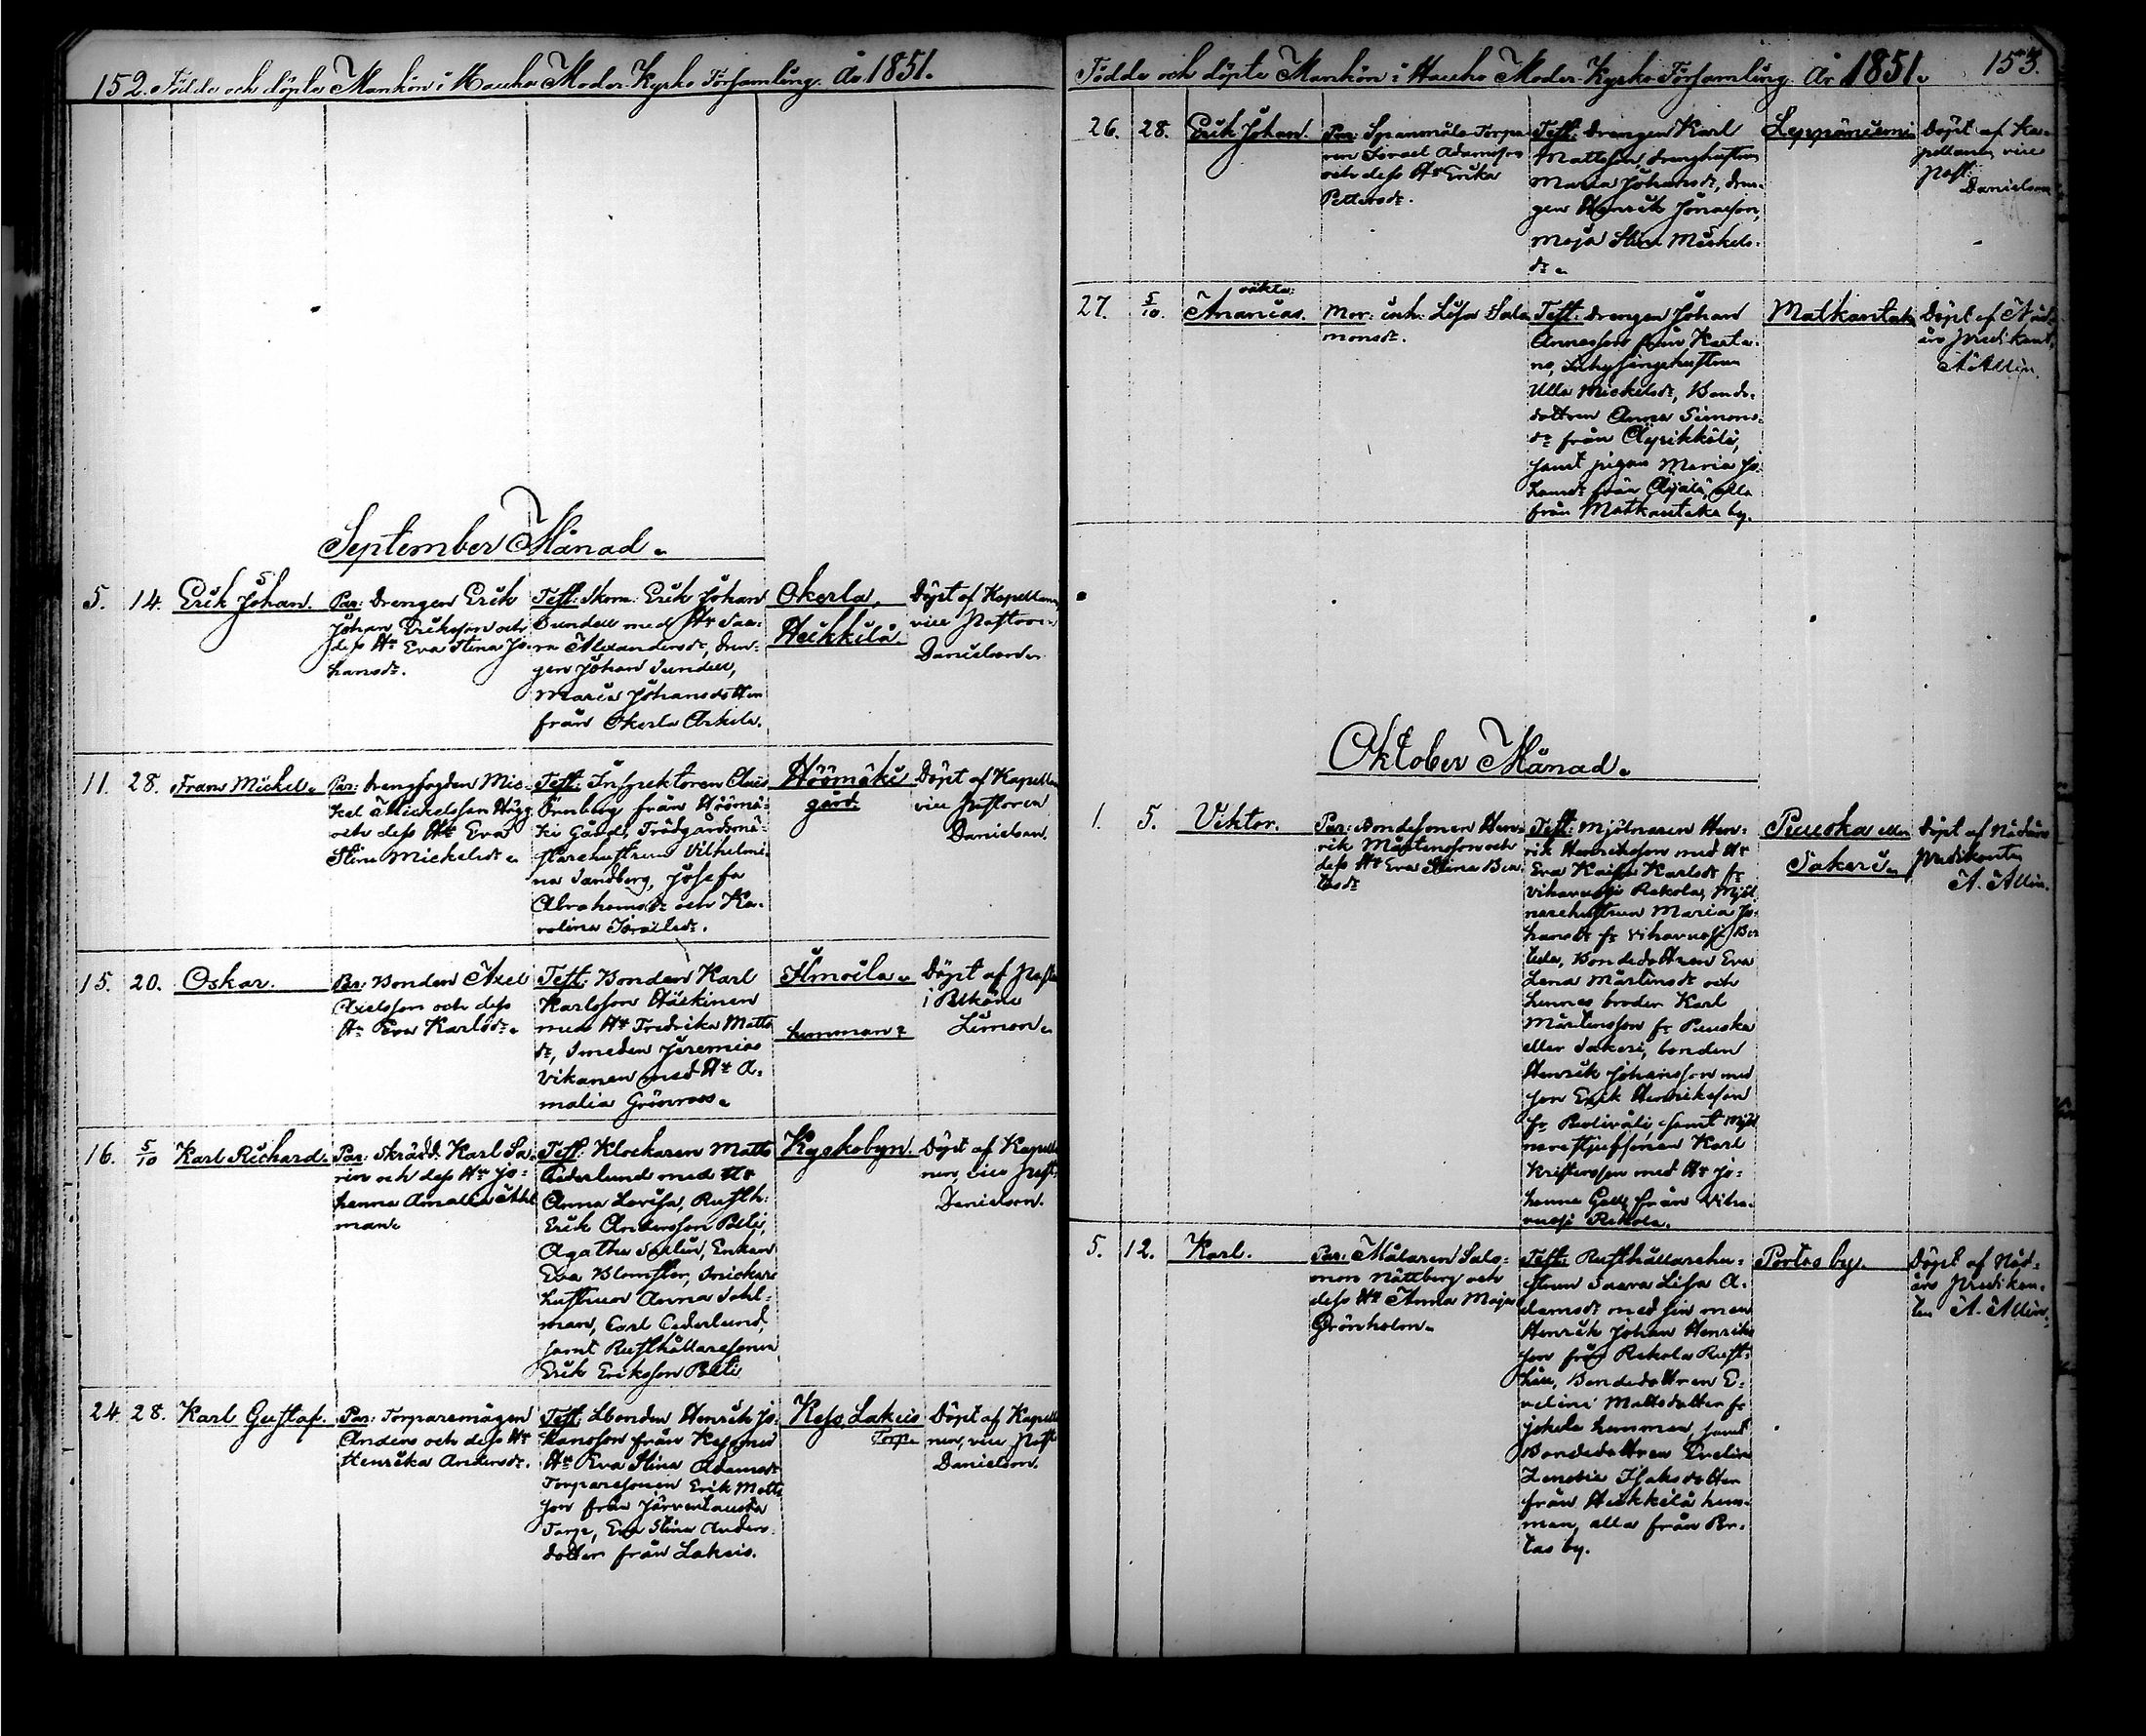 152. Födde och döpte Mankön i Hauho Moder-Kyrko Församling. År 1851.
September Månad.
5. 14. Erik Johan.
Par: Drengen Erik
Johan Eriksson och
dess Hu Eva Stina Jo-
hansdr.
Test: Skom. Erik Johan
Sundell med Hu Saa-
ra Alexandersdr, dren-
gen Johan Sundell,
Maria Johansdotter
från Okerla Arkela.
Okerla,
Heikkilä.
Döpt af Kapellanen,
vice Pastorn
Danielson.
11. 28. Frans Mickel.
Par: Drengfogden Mic-
kel Mickelsson Hägg
och dess Hu Eva
Stina Mickelsdr.
Test: Inspektoren
Örnberg från Höömä-
ki Gård, Trädgårdsmä-
starehustrun Vilhelmi-
na Sandberg, Josefa
Abrahamsdr och Ka-
rolina Israelsdr.
Höömäki
gård.
Döpt af Kapellan
vice Pastoren
Danielson.
15. 20. Oskar.
Par: Bonden Axel
Axelsson och dess
Hu Eva Karlsdr.
Test: Bonden Karl
Karlsson Häskinen
med Hu Fredrika Matts
dr, Smeden Jeremias
Vikanen med Hu A-
malia Grönroos.
Ilmoila
hemman
Döpt af Past
i Pelkäne
Limon.
16. 5/10 Karl Richard.
Par: Skrädd. Karl Sa-
rin och dess Hu Jo-
hanna Amalia Ahl
man.
Test: Klockaren Matts
Cederlund med Hu
Anna Lovisa, Rusth:
Erik Andersson Pelli,
Agatha Sarlin, Enkan
Eva Blomster, Snickare
hustrun Anna Dahl-
man, Carl Cederlund,
samt Rusthållaresonen
Erik Eriksson Pelli
Kyrkobyn.
Döpt af Kapella
nen, vice Past:
Danielson.
24. 28. Karl Gustaf.
Par: Torparemågen
Anders och dess Hu
Henrika Andersdr.
Test: Bonden Henrik Jo-
hansson från Kess med
Hu Eva Stina Adamsdr
Torparesonen Erik Matts
son från Järventausta
Torp, Eva Stina Anders-
dotter från Lakeis.
Kess, Lakeis
Torp.
Döpt af Kapella
nen, vice Past
Danielson.
Födde och döpte Mankön i Hauho Moder-Kyrko Församling. År 1851. 153.
26. 28. Erik Johan.
Par: Spannmåls Torpa-
ren Israel Adamsson
och dess Hu Erika
Pettersdr.
Test: Drengen Karl
Mattsson, drenghustrun
Maria Johansdr, dren-
gen Henrik Jönasson,
Maja Stina Mickels-
dr.
Leppäniemi
Döpt af Ka-
pellanen vice
Past:
Danielson
27. 5/10. oäkta:
Ananias.
Mor: inh. Lisa Salo
monsdr.
Test: Drengen Johan
Annasson från Karta-
no, Inhysingehustrun
Ulla Mickelsdr, Bonde-
dottren Anna Simons-
dr från Äyrikkälä,
samt pigan Maria Jo-
hansdr från Äijälä, alla
från Matkantaka by.
Matkantaka
Döpt af Nåd-
års predikant,
A. Allén.
Oktober Månad.
1. 5. Viktor.
Par: Bondesonen Hen-
rik Mårtensson och
dess Hu Eva Stina
Test: Mjölnaren Hen-
rik Henriksson med Hu
Eva Kaisa Karlsdr fr
Vihavuosi Rekola, Mjöl
narehustrun Maria Jo-
hansdr fr Vihavuosi
Bondedottren Eva
Lena Mårtensdr och
hennes broder Karl
Mårtensson fr Puuska
eller Sakeri, bonden
Henrik Johansson med
son Erik Henriksson
fr samt Mjöl
narestjufsonen Karl
Kristersson med Hu Jo-
hanna från Viha-
vuosi Rekola.
Puuska eller
Sakeri.
Döpt af Nådårs
Predikanten
A. Allén.
5. 12. Karl.
Par: Målaren Salo-
mon Nättberg och
dess Hu Anna Maja
Grönholm.
Test: Rusthållarehu-
strun Saara Lisa A-
damsdr med sin man
Henrik Johan Henriks
son från Rekola Rust-
håll, Bondedottren E-
velina Mattsdotter fr
Jokela hemman, samt
Bondedottren Evelina
Zenobia Isaksdotter
från Heikkilä hem-
man, alla från Por-
tas by.
Portas by.
Döpt af Nåd-
års Predikan-
ten A. Allén.